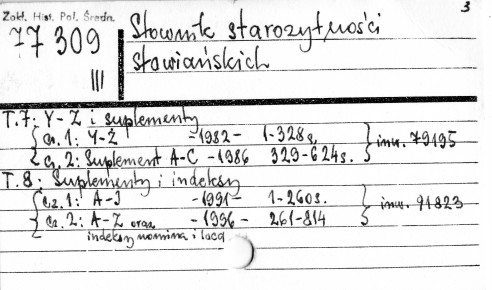 Zakł. Hist. Pol. Średn.
3
77 309
III
Słownik starożytności
słowiańskich
T. 7: Y - Z i suplementy
cz. 1: Y-Ż - 1982 - 1-328 s. inw. 79195
cz. 2: Suplement A-C - 1986 329-624 s.
T. 8: Suplementy i indeksy
cz. 1: A-J - 1991 - 1-260 s. inw. 91823
cz. 2: A-Z oraz - 1996 - 261-814
indeksy nomina i loca